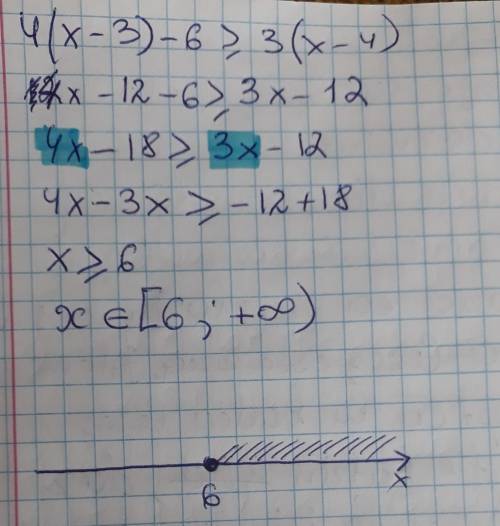 4(x-3)-6⩾3(x-4)
4x-12-6⩾3x-12
4x-18⩾3x-12
4x-3x⩾-12+18
x⩾6
x∈[6;+∞)
6
x